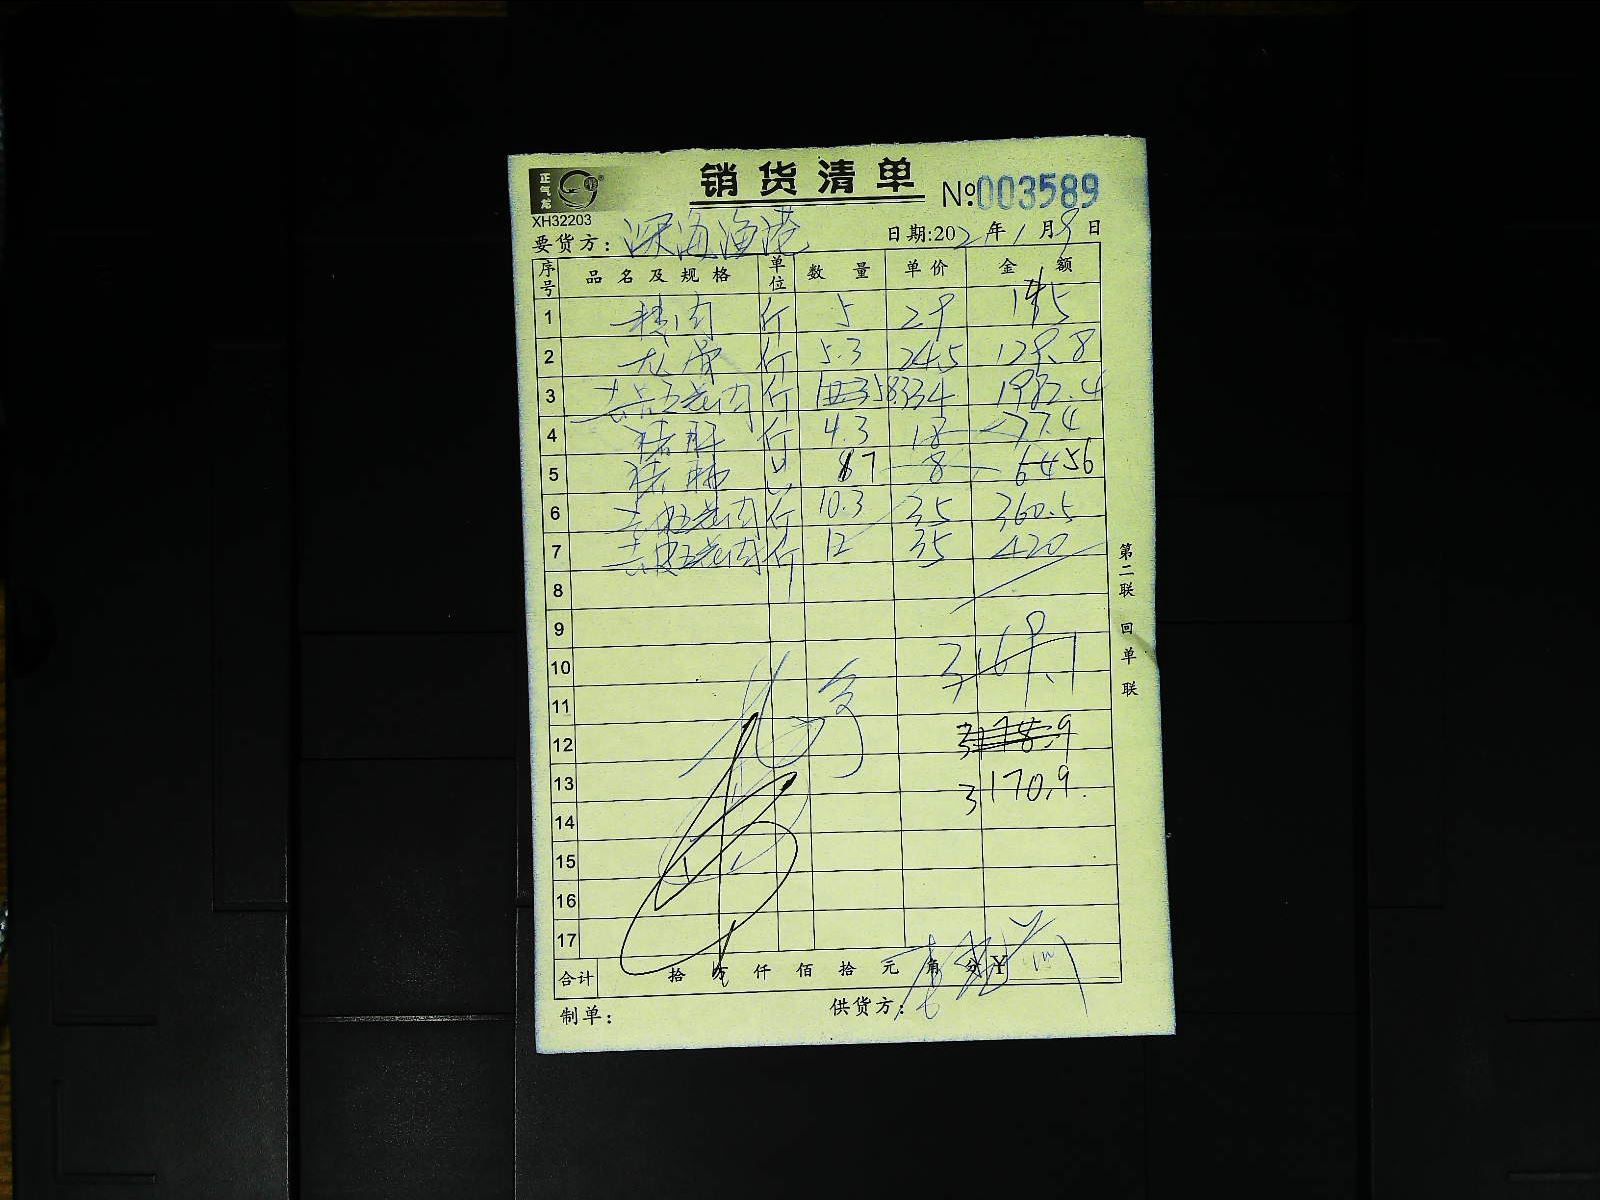 销货清单
正气龙
XH32203
№:003589
要货方: 深海渔港 日期:202 年1月9日
序号 品名及规格 单位 数量 单价 金额
1 精肉 斤 5 29 145
2 龙骨 斤 5.3 24.5 129.8
3 去皮五花肉 斤 58.3 34 1982.4
4 猪肝 斤 4.3 18 77.4
5 猪 7 8 64 56
6 去皮五花肉 斤 10.3 35 360.5
7 去皮五花肉 斤 12 35 420
8
9
10 3169.1
11
12 3178.9
13 3170.9
14
15
16
17
合计 拾 万 仟 佰 拾 元 角 分 ¥
制单: 供货方:
第二联 回单联